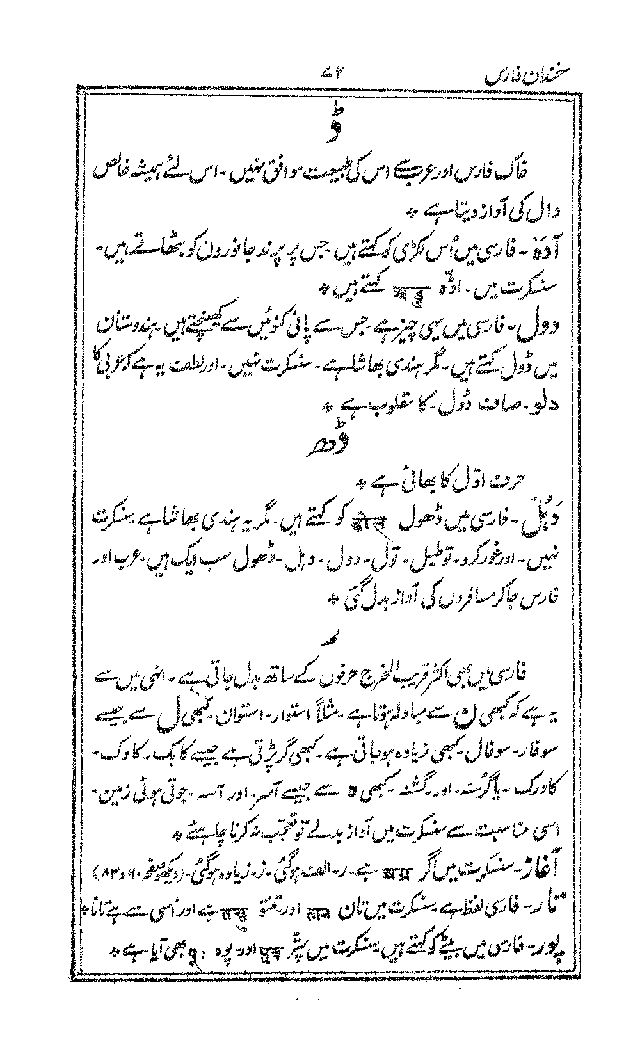 سخندان فارس ۷۲
ڈ
خاک فارس اور عرب سے اس کی طبیعت موافق نہیں - اس لئے ہمیشہ خالص
دال کی آواز دیتا ہے *
آدَہ - فارسی میں اُس لکڑی کو کہتے ہیں جس پر پرند جانوروں کو بٹھاتے ہیں -
سنسکرت میں - اڈہ کہتے ہیں *
دول - فارسی میں یہی چیز ہے - جس سے پانی کنوئیں سے کھینچتے ہیں - ہندوستان
میں ڈول کہتے ہیں - مگر ہندی بھاشا ہے - سنسکرت نہیں - اور لطف یہ ہے کہ عربی کا
دلو - صاف ڈول - کا مقلوب ہے *
ڈھ
حرف اوّل کا بھائی ہے *
دُہُل - فارسی میں ڈھول ढोल کو کہتے ہیں - مگر یہ ہندی بھاشا ہے سنسکرت
نہیں - اور غور کرو - توطبل - تول - دول - دہل - ڈھول سب ایک ہیں - عرب اور
فارس جاکر مسافروں کی آواز بدل گئی *
ر
فارسی میں بھی اکثر قریب المخرج حرفوں کے ساتھ بدل جاتی ہے - انہی میں سے
یہ ہے کہ کبھی ن سے مبادلہ ہوتا ہے - مثلاً استوار - استوان - کبھی ل سے جیسے
سوفار - سوفال - کبھی زیادہ ہو جاتی ہے - کبھی گر پڑتی ہے جیسے کابک - کاوک -
کاورک - یا گُرسنہ - اور گشنہ - کبھی ہ سے جیسے آسر اور آسہ - جوتی ہوئی زمین -
اسی مناسبت سے سنسکرت میں آواز بدلے تو تعجب نہ کرنا چاہئے *
آغاز - سنسکرت میں اگر अग्र ہے - ر - الف ہوگئی - ز - زیادہ ہوگئی - (دیکھو صفحہ ۹۰ و ۸۳)
تار - فارسی لفظ ہے سنسکرت میں تان तान اور ہے اور اُسی سے ہے تانا *
پور - فارسی میں بیٹے کو کہتے ہیں سنسکرت میں پتر पुत्र اور پوہ بھی آیا ہے *